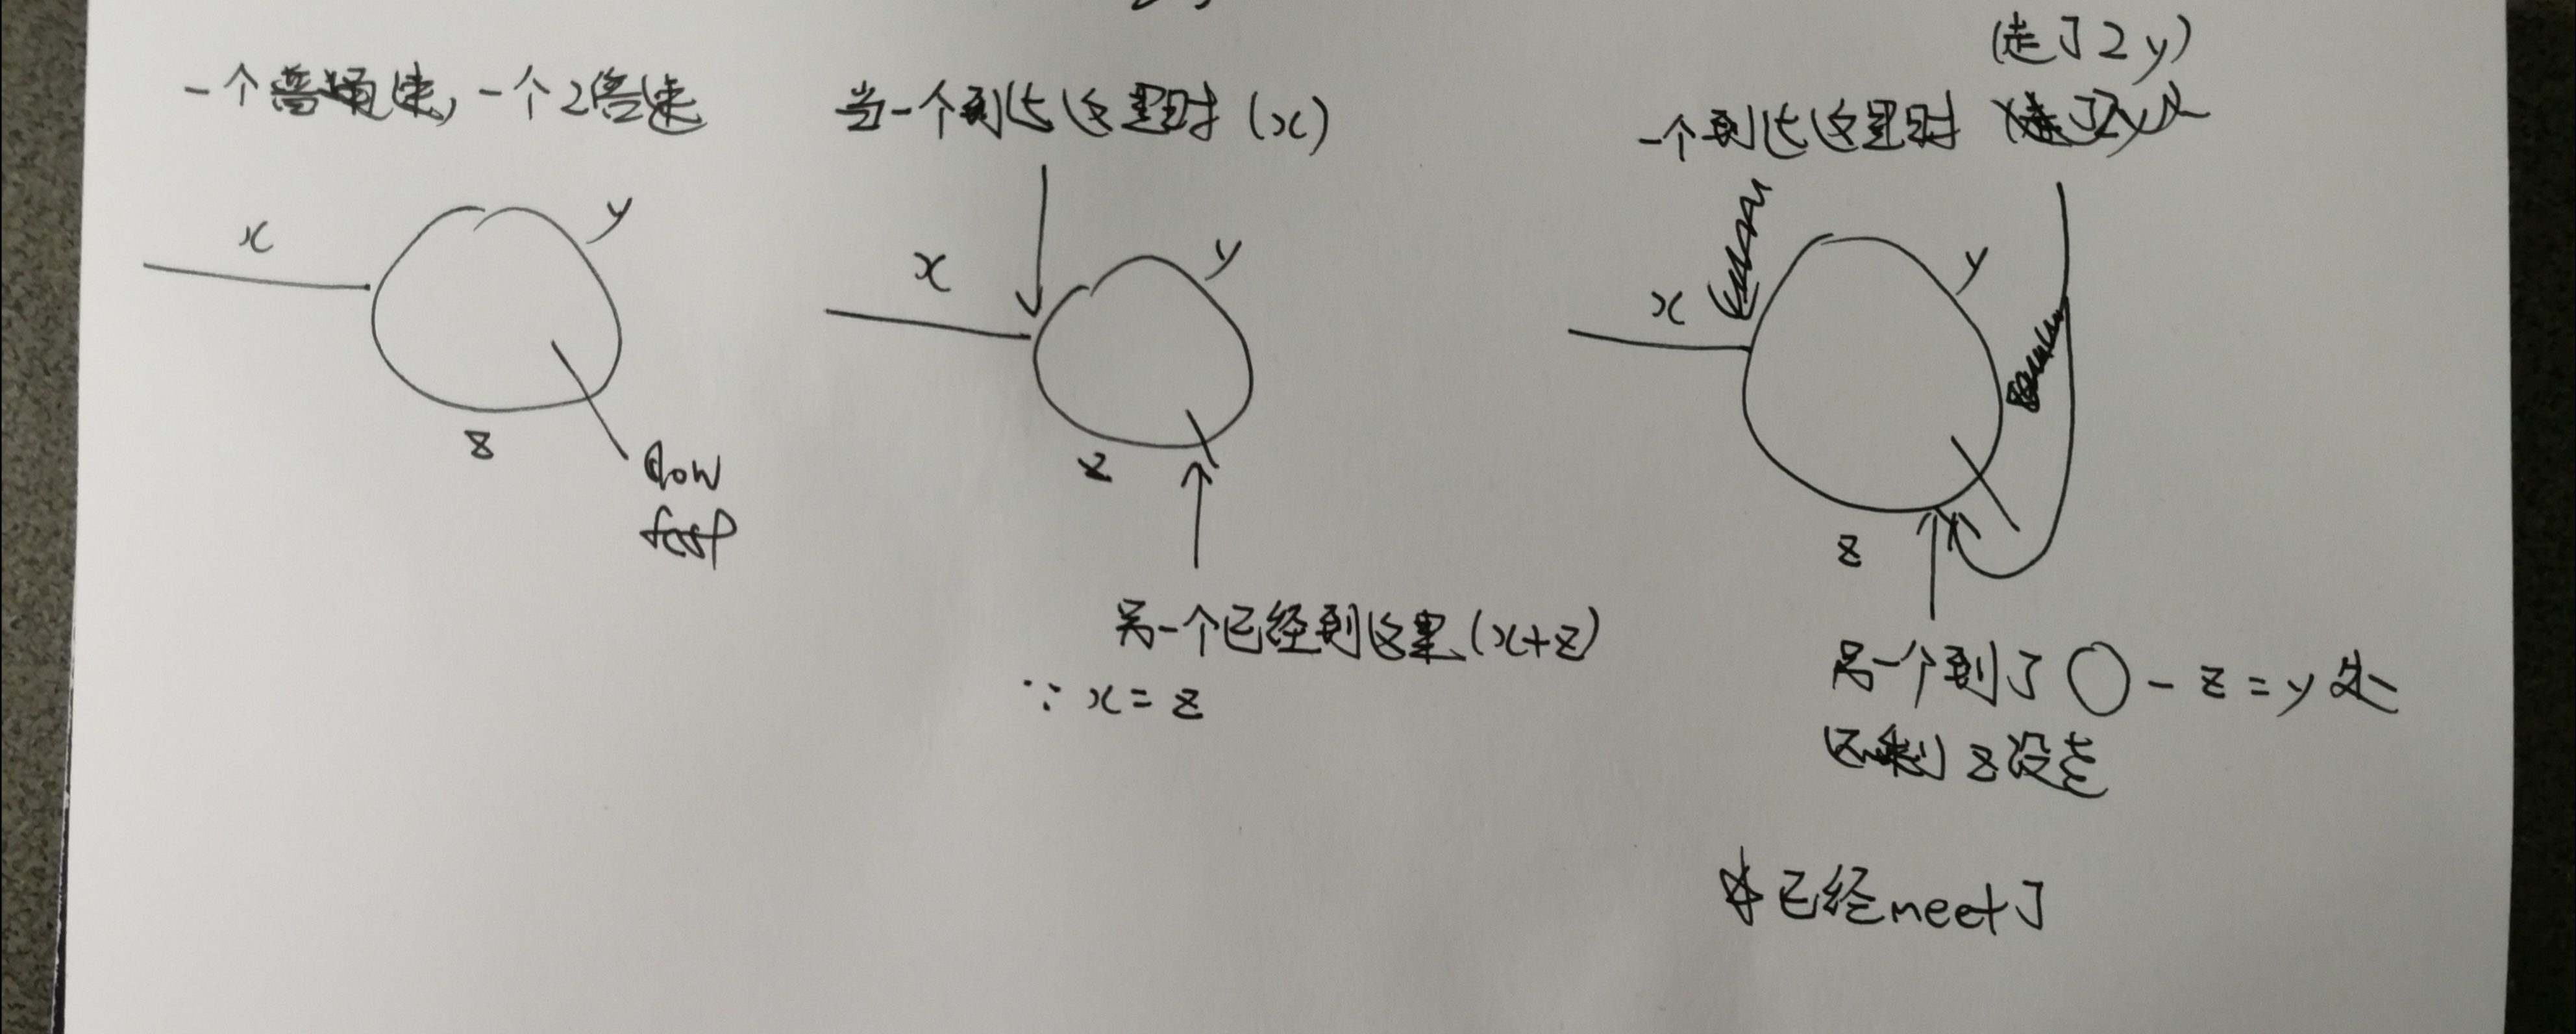 一个普通速,一个2倍速
x
y
z
slow
fast
当一个到达这里时(x)
x
y
z
另一个已经到这里(x+z)
∵ x = z
(走了2y)
一个到达这里时
x
y
z
另一个到了○-z=y处
还剩z没走
已经meet了